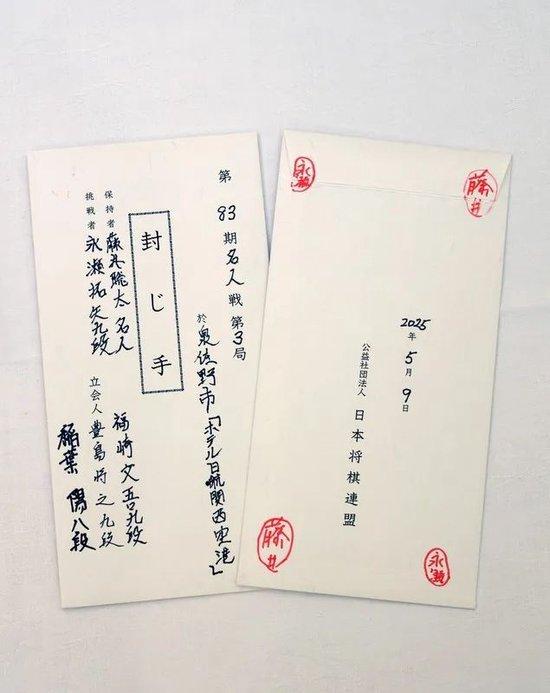 第83期名人戦第3局
於 泉佐野市「ホテル日航関西空港」
封じ手
保持者 藤井聡太名人
挑戦者 永瀬拓矢九段
福崎文吾九段
立会人 豊島将之九段
稲葉陽八段
永瀬
藤井
2025年5月9日
公益社団法人 日本将棋連盟
藤井
永瀬